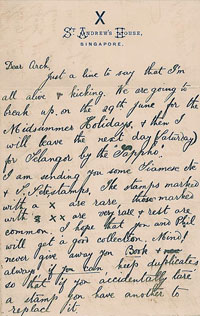 X
ST. ANDREW'S HOUSE,
SINGAPORE.
Dear Arch,
Just a line to say that I'm
all alive & kicking. We are going to
break up on the 29th June for the
Midsummer Holidays, & then I
will leave the next day (Saturday)
for Selangor by the "Sappho".
I am sending you some Siamese
& S. Stamps. The stamps marked
with a x are rare, those marked
with xx are very rare & rest are
common. I hope that you and Phil
will get a good collection. Mind!
never give away you Book & me
always, if you can, keep duplicates
so that if you accidentally tare
a stamp you have another to
replace it.